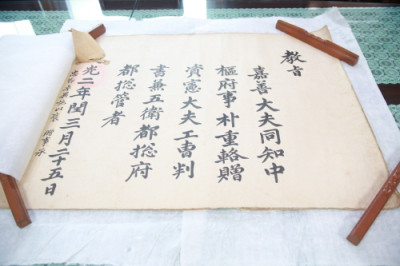 教旨
嘉善大夫同知中
樞府事朴重輅贈
資憲大夫工曹判
書兼五衛都総府
都総管者
光二年閏三月二十五日